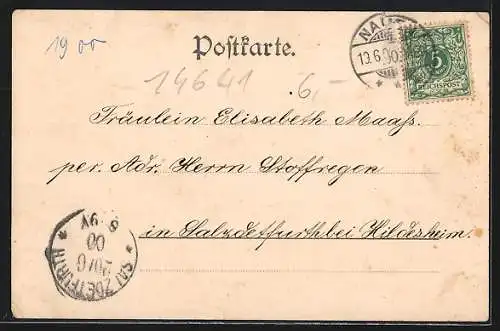 19 00
Postkarte.
13.6.00
5
REICHSPOST
14641
6,-
Fräulein Elisabeth Maaß.
per. Adr. Herrn Stoffregen
in Salzdetfurth bei Hildesheim.
SALZDETFURTH
00